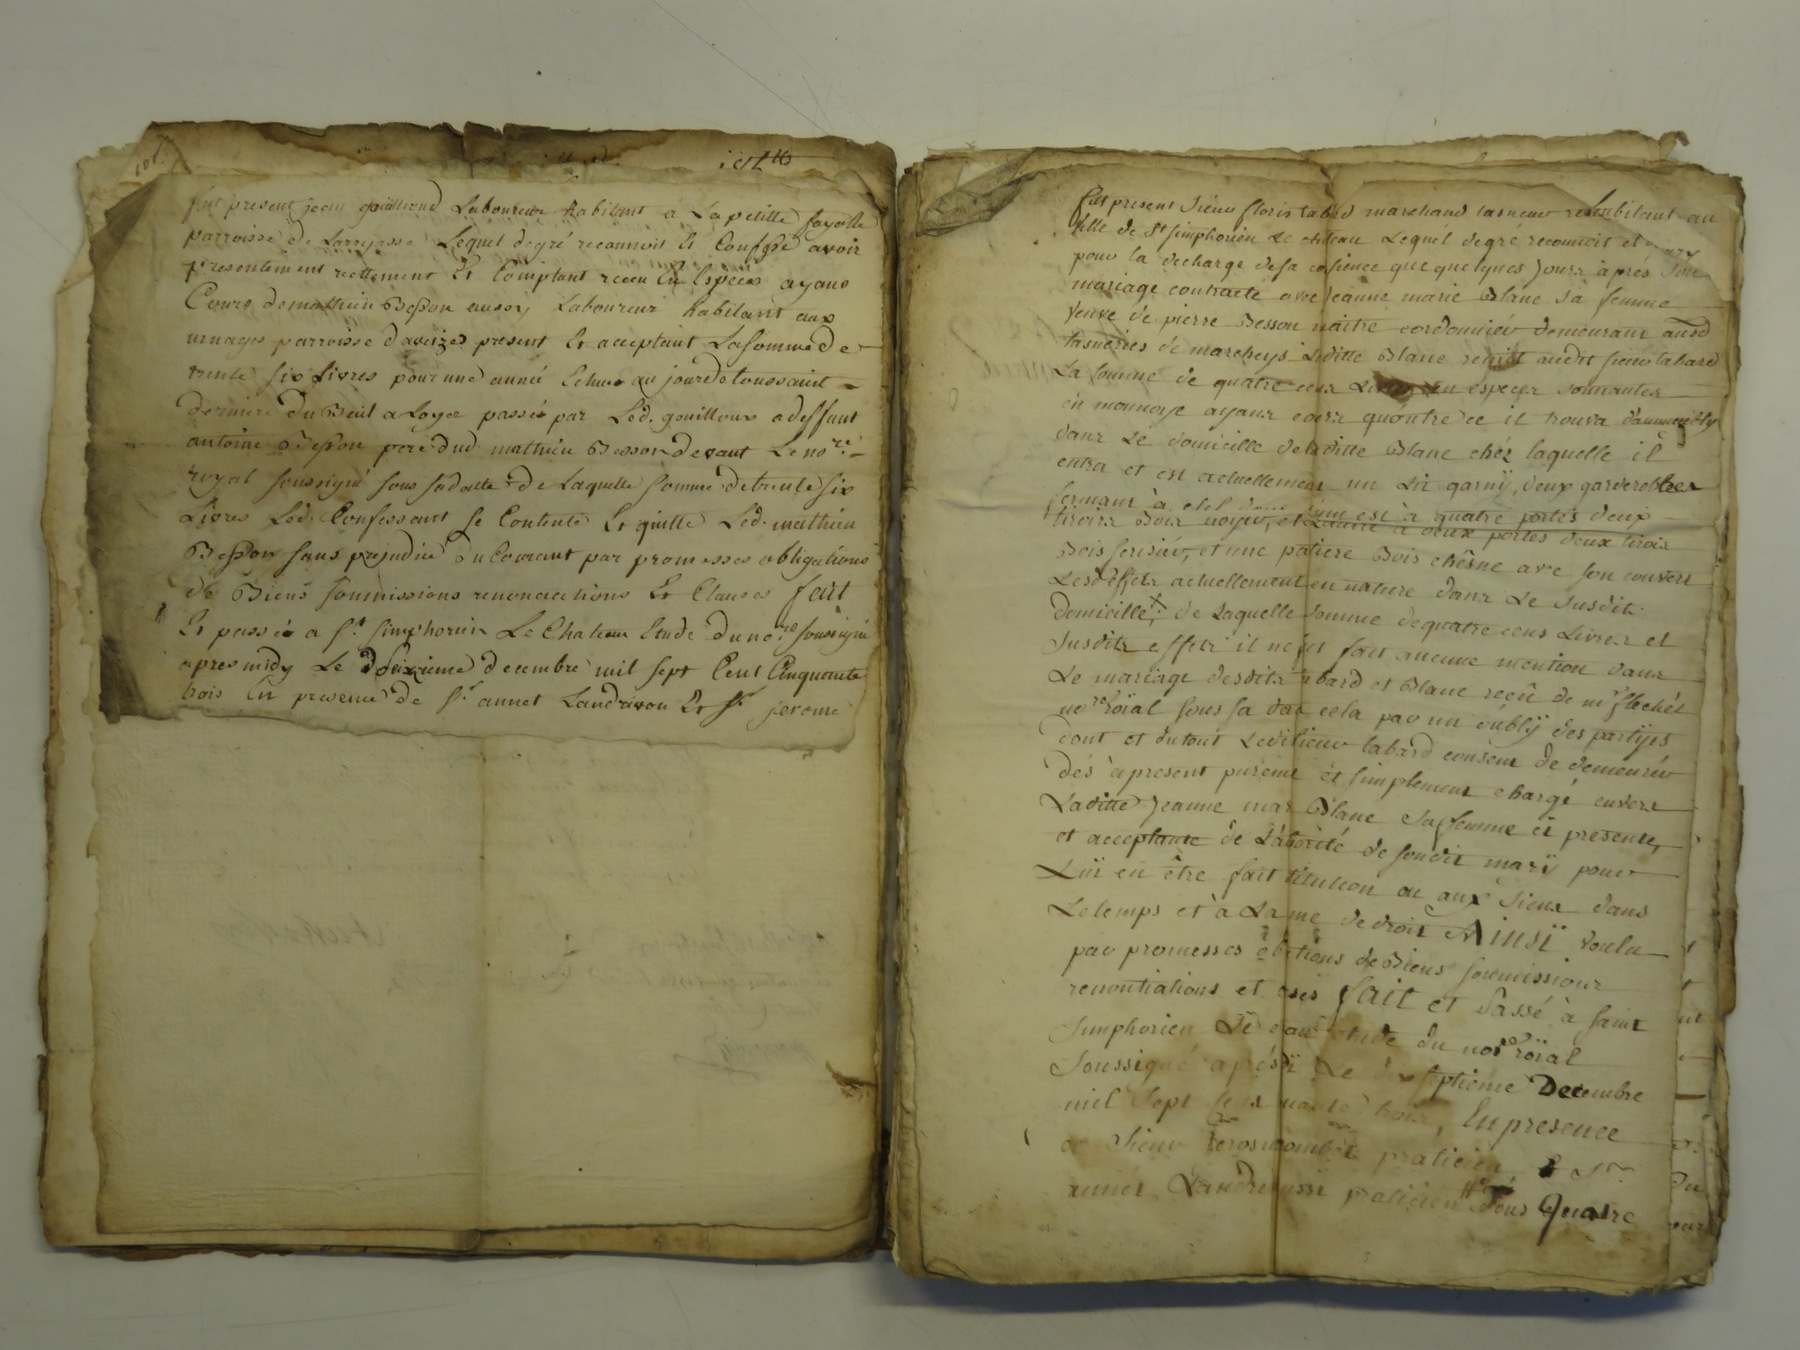 101.
fut present jean gouilloud Laboureur habitant a La petitte fayolle
parroisse de Larajasse Lequel degré reconnoit Et Confesse avoir
presentement reellement Et Comptant receu En Especes ayans
Cours de mathieu Besson aussy Laboureur habitant aux
urnages parroisse d'aveizes present Et acceptant La somme de
trente six Livres pour une année Echue au jour de toussaint
derniere du Beuil a Loyer passée par Led. gouilloux a deffunt
antoine Besson pere dud. mathieu Besson devant Le no.re
royal soussigné sous sa datte de Laquelle somme de trente six
Livres Led. Confessant se Contente Et quitte Led. mathieu
Besson sans prejudice du Courant par promesses obligations
de Biens soumissions renonciations Et Clauses fait
Et passé a St. simphorien Le Chateau Etude du no.re soussigné
apres midy Le deuxieme decembre mil sept Cent Cinquante
trois En presence de Sr. annet Landrivon Et Sr. jerome
fut present sieur floris tabard marchand tasneur habitant au
ville de St simphorien Le château Lequel degré reconnoit et
pour la decharge de sa consience que quelques jours àprés son
mariage contracté avec jeanne marie Blanc sa femme
veuve de pierre Besson maitre cordonnier demeurant ausd
tasneries de marcheys Laditte Blanc remist audit sieur tabard
La somme de quatre cens Livres en especes sonnantes
en monnoye ayans cours quoutre ce il trouva
dans Le domicille de laditte Blanc chéz laquelle il
entra et est actuellement un Lit garny, deux garderobbes
fermant à clef une est à quatre portes deux
tiroirs Bois noyer, et L'autre à deux portes deux tiroirs
Bois serisier, et une patiere Bois chêsne avec son couvert
Lesd effets actuellement en nature dans Le susdit
domicille; de Laquelle somme de quatre cens Livres et
susdits effets il ne fut fait aucune mention dans
Le mariage desdits tabard et Blanc reçû de me flechét
no.re roïal sous sa date cela par un oublÿ des partÿes
dont et du tout Ledit sieur tabard consent de demeurer
dés àpresent purement et simplement chargé envers
Laditte jeanne marie Blanc sa femme ci presente,
et acceptante de L'autorité de sondit marÿ pour
Luï en être fait restitution ou aux siens dans
Le temps et à La forme de droit Ainsÿ voulu
par promesses obligations de Biens soumissions
renontiations et clauses fait et Passé à saint
simphorien Le chateau etude du no.re roïal
soussigné aprés midi Le dix septieme Decembre
mil sept cens cinquante trois, En presence
de sieur praticien & Sr
annét Landrivon aussi praticien Tous Quatre